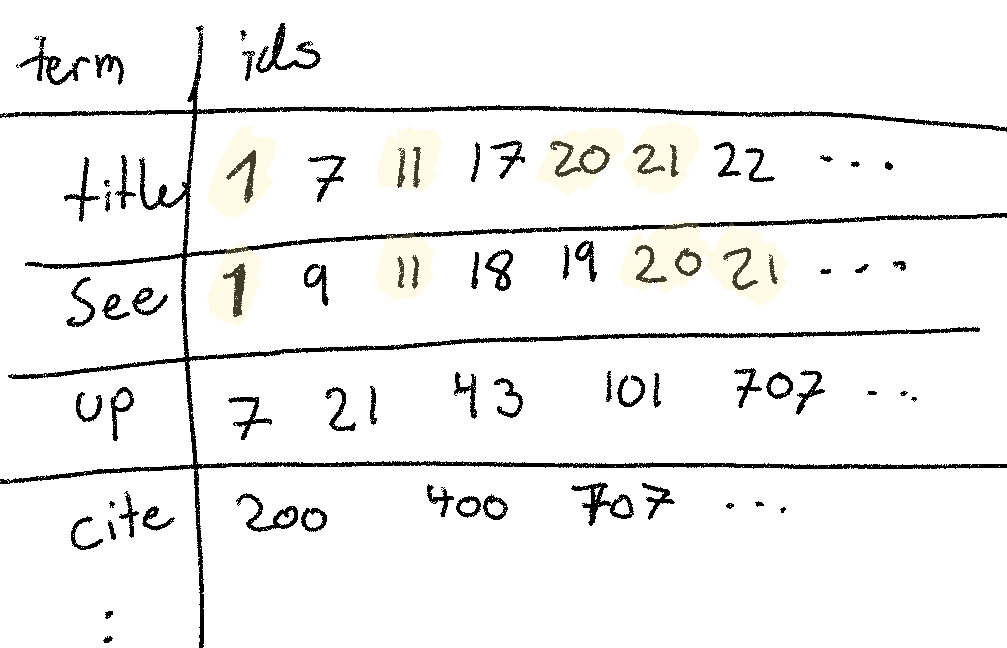 term ids
title 1 7 11 17 20 21 22 ...
See 1 9 11 18 19 20 21 ...
up 7 21 43 101 707 ...
cite 200 400 707 ...
: